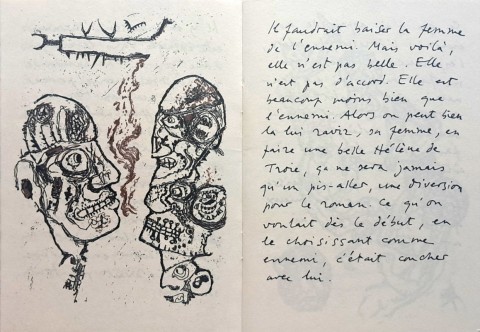 Il faudrait baiser la femme
de l'ennemi. Mais voilà,
elle n'est pas belle. Elle
n'est pas d'accord. Elle est
beaucoup moins bien que
l'ennemi. Alors on peut bien
la lui ravir, sa femme, en
faire une belle Hélène de
Troie, ça ne sera jamais
qu'un pis-aller, une diversion
pour le roman. Ce qu'on
voulait dès le début, en
le choisissant comme
ennemi, c'était coucher
avec lui.